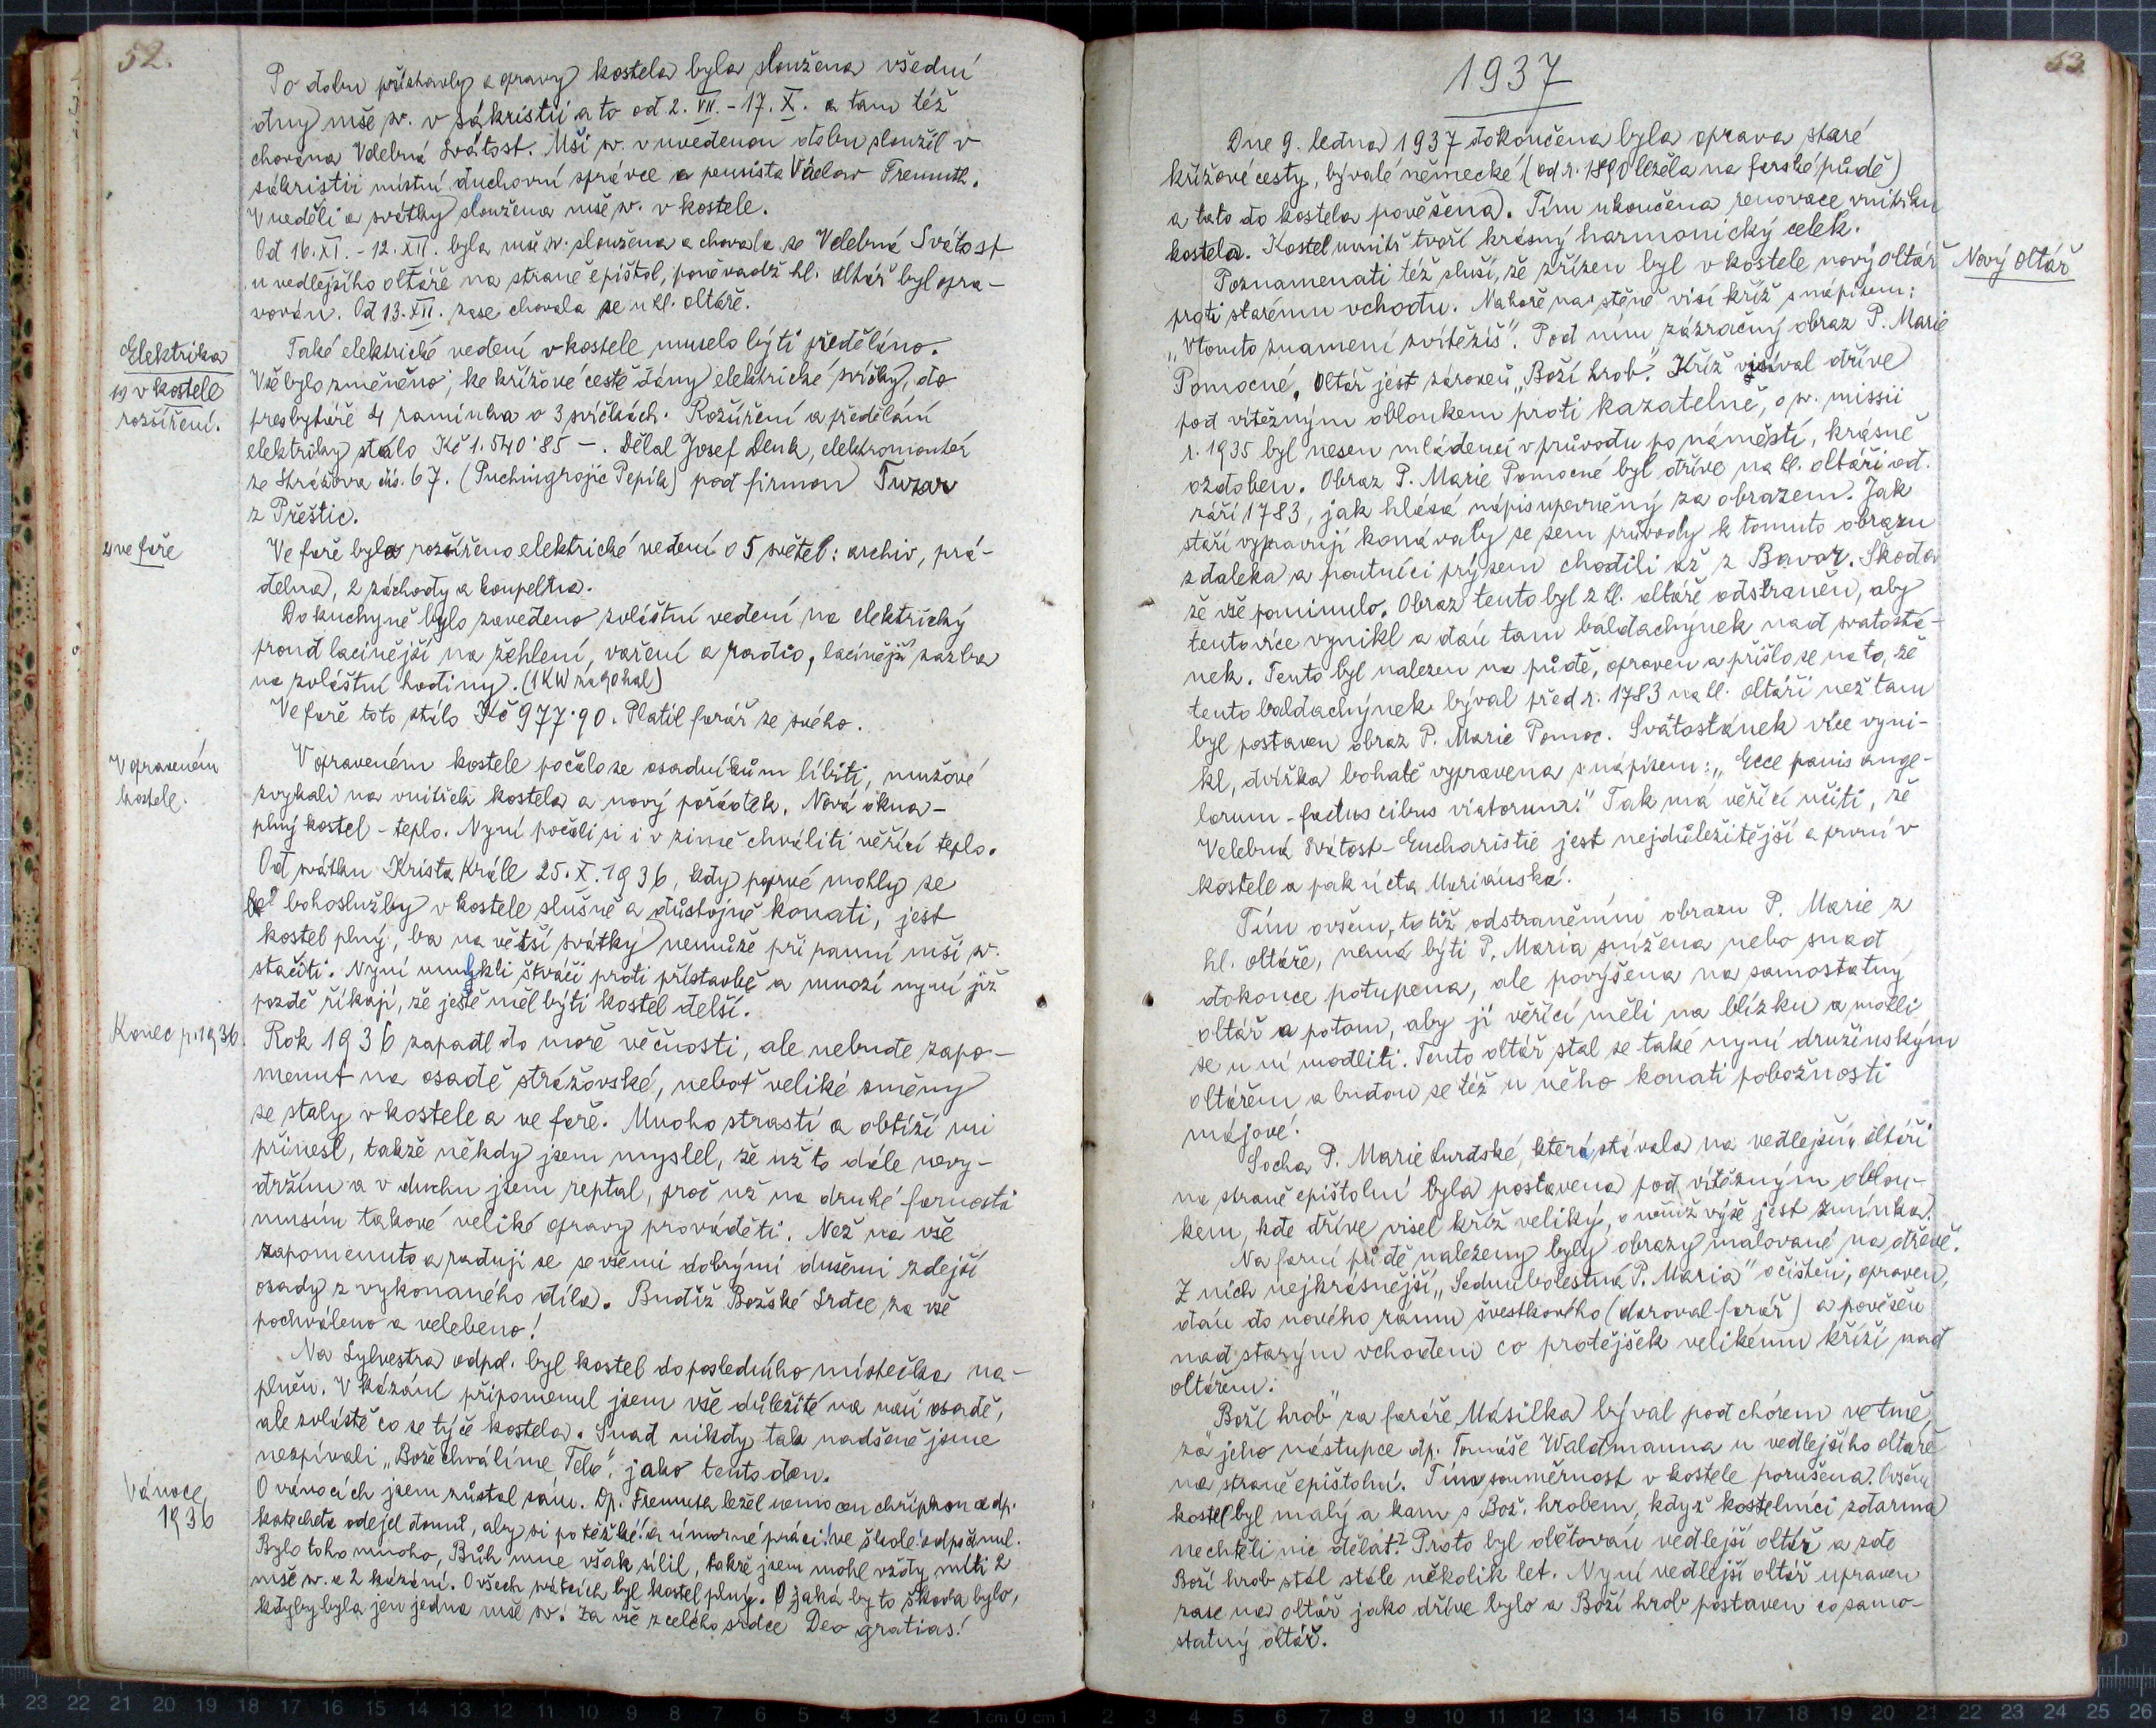 52.
Po dobu přístavby a opravy kostela byla sloužena všední
dny mše sv. v sákristii a to od 2. VII. - 17. X. a tam též
chována Velebná Svátost. Mši sv. v uvedenou dobu sloužil v
sákristii místní duchovní správce a pensista Václav Fremuth.
V neděli a svátky sloužena mše sv. v kostele.
Od 16. XI. - 12. XII. byla mše sv. sloužena a chovala se Velebná Svátost
u vedlejšího oltáře na straně epištol, poněvadž hl. oltář byl opra-
vován. Od 13. XII. zase chovala se u hl. oltáře.
Elektrika
1) v kostele
rozšíření.
Také elektrické vedení v kostele muselo býti předěláno.
Vše bylo změněno; ke křížové cestě dány elektrické svíčky, do
presbytáře 4 ramínka o 3 svíčkách. Rozšíření a předělání
elektriky stálo Kč 1.540·85 -. Dělal Josef Denk, elektromontér
ze Strážova čís. 67. (Puchingrojic Pepík) pod firmou Tuzar
z Přeštic.
2) ve faře
Ve faře bylo rozšířeno elektrické vedení o 5 světel: archiv, prá-
delna, 2 záchody a koupelna.
Do kuchyně bylo zavedeno zvláštní vedení na elektrický
proud lacinější na žehlení, vaření a radio, lacinější sazba
na zvláštní hodiny. (1 KW za 90 hal)
Ve faře toto stálo Kč 977·90. Platil farář ze svého.
V opraveném
kostele.
V opraveném kostele počalo se osadníkům líbiti, mužové
zvykali na vnitřek kostela a nový pořádek. Nová okna -
plný kostel - teplo. Nyní počali si i v zimě chváliti věřící teplo.
Od svátku Krista Krále 25. X. 1936, kdy poprvé mohly se
bohoslužby v kostele slušně a důstojně konati, jest
kostel plný, ba na větší svátky nemůže při ranní mši sv.
stačiti. Nyní umlkli štváči proti přístavbě a mnozí nyní již
pozdě říkají, že ještě měl býti kostel delší.
Konec r. 1936.
Rok 1936 zapadl do moře věčnosti, ale nebude zapo-
menut na osadě strážovské, neboť veliké změny
se staly v kostele a ve faře. Mnoho strastí a obtíží mi
přinesl, takže někdy jsem myslel, že už to dále nevy-
držím a v duchu jsem reptal, proč už na druhé farnosti
musím takové veliké opravy prováděti. Než na vše
zapomenuto a raduji se se všemi dobrými dušemi zdejší
osady z vykonaného díla. Budiž Božské Srdce za vše
pochváleno a velebeno!
Na Sylvestra odpol. byl kostel do posledního místečka na-
plněn. V kázání připomenul jsem vše důležité na naší osadě,
ale zvláště co se týče kostela. Snad nikdy tak nadšeně jsme
nezpívali „Bože chválíme Tebe", jako tento den.
Vánoce
1936
O vánocích jsem zůstal sám. Dp. Fremuth ležel nemocen chřipkou a dp.
katecheta odejel domů, aby si po těžké! a úmorné práci! ve škole! odpočinul.
Bylo toho mnoho, Bůh mne však sílil, takže jsem mohl vždy míti 2
mše sv. a 2 kázání. O všech svátcích byl kostel plný. O jaká by to škoda bylo,
kdyby byla jen jedna mše sv.! Za vše z celého srdce Deo gratias!
53
1937
Dne 9. ledna 1937 dokončena byla oprava staré
křížové cesty, bývalé německé (od r. 1890 ležela na farské půdě)
a tato do kostela pověšena. Tím ukončena renovace vnitřku
kostela. Kostel uvnitř tvoří krásný harmonický celek.
Nový oltář
Poznamenati též sluší, že zřízen byl v kostele nový oltář
proti starému vchodu. Nahoře na stěně visí kříž s nápisem:
„V tomto znamení zvítězíš". Pod ním zázračný obraz P. Marie
Pomocné. Oltář jest zároveň „Boží hrob". Kříž visíval dříve
pod vítězným obloukem proti kazatelně, o sv. missii
r. 1935 byl nesen mládenci v průvodu po náměstí, krásně
ozdoben. Obraz P. Marie Pomocné byl dříve na hl. oltáři od
září 1783, jak hlásá nápis upevněný za obrazem. Jak
staří vypravují konávaly se sem průvody k tomuto obrazu
z daleka a poutníci prý sem chodili až z Bavor. Škoda
že vše pominulo. Obraz tento byl z hl. oltáře odstraněn, aby
tento více vynikl a dán tam baldachýnek nad svatostá-
nek. Tento byl nalezen na půdě, opraven a přišlo se na to, že
tento baldachýnek býval před r. 1783 na hl. oltáři než tam
byl postaven obraz P. Marie Pomoc. Svatostánek více vyni-
kl, dvířka bohatě vypravena s nápisem: „Ecce panis ange-
lorum - factus cibus viatorum". Tak má věřící učiti, že
Velebná Svátost - Eucharistie jest nejdůležitější a první v
kostele a pak úcta Mariánská.
Tím ovšem, totiž odstraněním obrazu P. Marie z
hl. oltáře, nemá býti P. Maria snížena nebo snad
dokonce potupena, ale povýšena na samostatný
oltář a potom, aby ji věřící měli na blízku a mohli
se u ní modliti. Tento oltář stal se také nyní družinským
oltářem a budou se též u něho konati pobožnosti
májové.
Socha P. Marie Lurdské, která stávala na vedlejším oltáři
na straně epištolní byla postavena pod vítězným oblou-
kem, kde dříve visel kříž veliký, o němž výše jest zmínka.
Na farní půdě nalezeny byly obrazy malované na dřevě.
Z nich nejkrásnější „Sedmibolestná P. Maria" očištěn, opraven,
dán do nového rámu švestkového (daroval farář) a pověšen
nad starým vchodem co protějšek velikému kříži nad
oltářem.
„Boží hrob" za faráře Másilka býval pod chórem ve tmě,
za jeho nástupce dp. Tomáše Waldmanna u vedlejšího oltáře
na straně epištolní. Tím souměrnost v kostele porušena. Ovšem
kostel byl malý a kam s Bož. hrobem, když kostelníci zdarma
nechtěli nic dělat? Proto byl obětován vedlejší oltář a zde
Boží hrob stál stále několik let. Nyní vedlejší oltář upraven
zase na oltář jako dříve bylo a Boží hrob postaven co samo-
statný oltář.